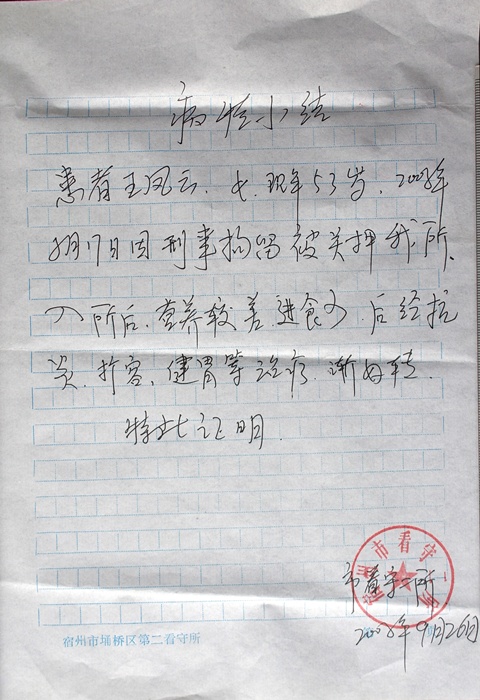 病情小结
患者王凤云、女、现年53岁、2008年
8月17日因刑事拘留被关押我所、
入所后、营养较差、进食少、后经抗
炎、扩容、健胃等治疗、渐好转.
特此证明.
市看守二所
2008年9月26日
宿州市埇桥区第二看守所